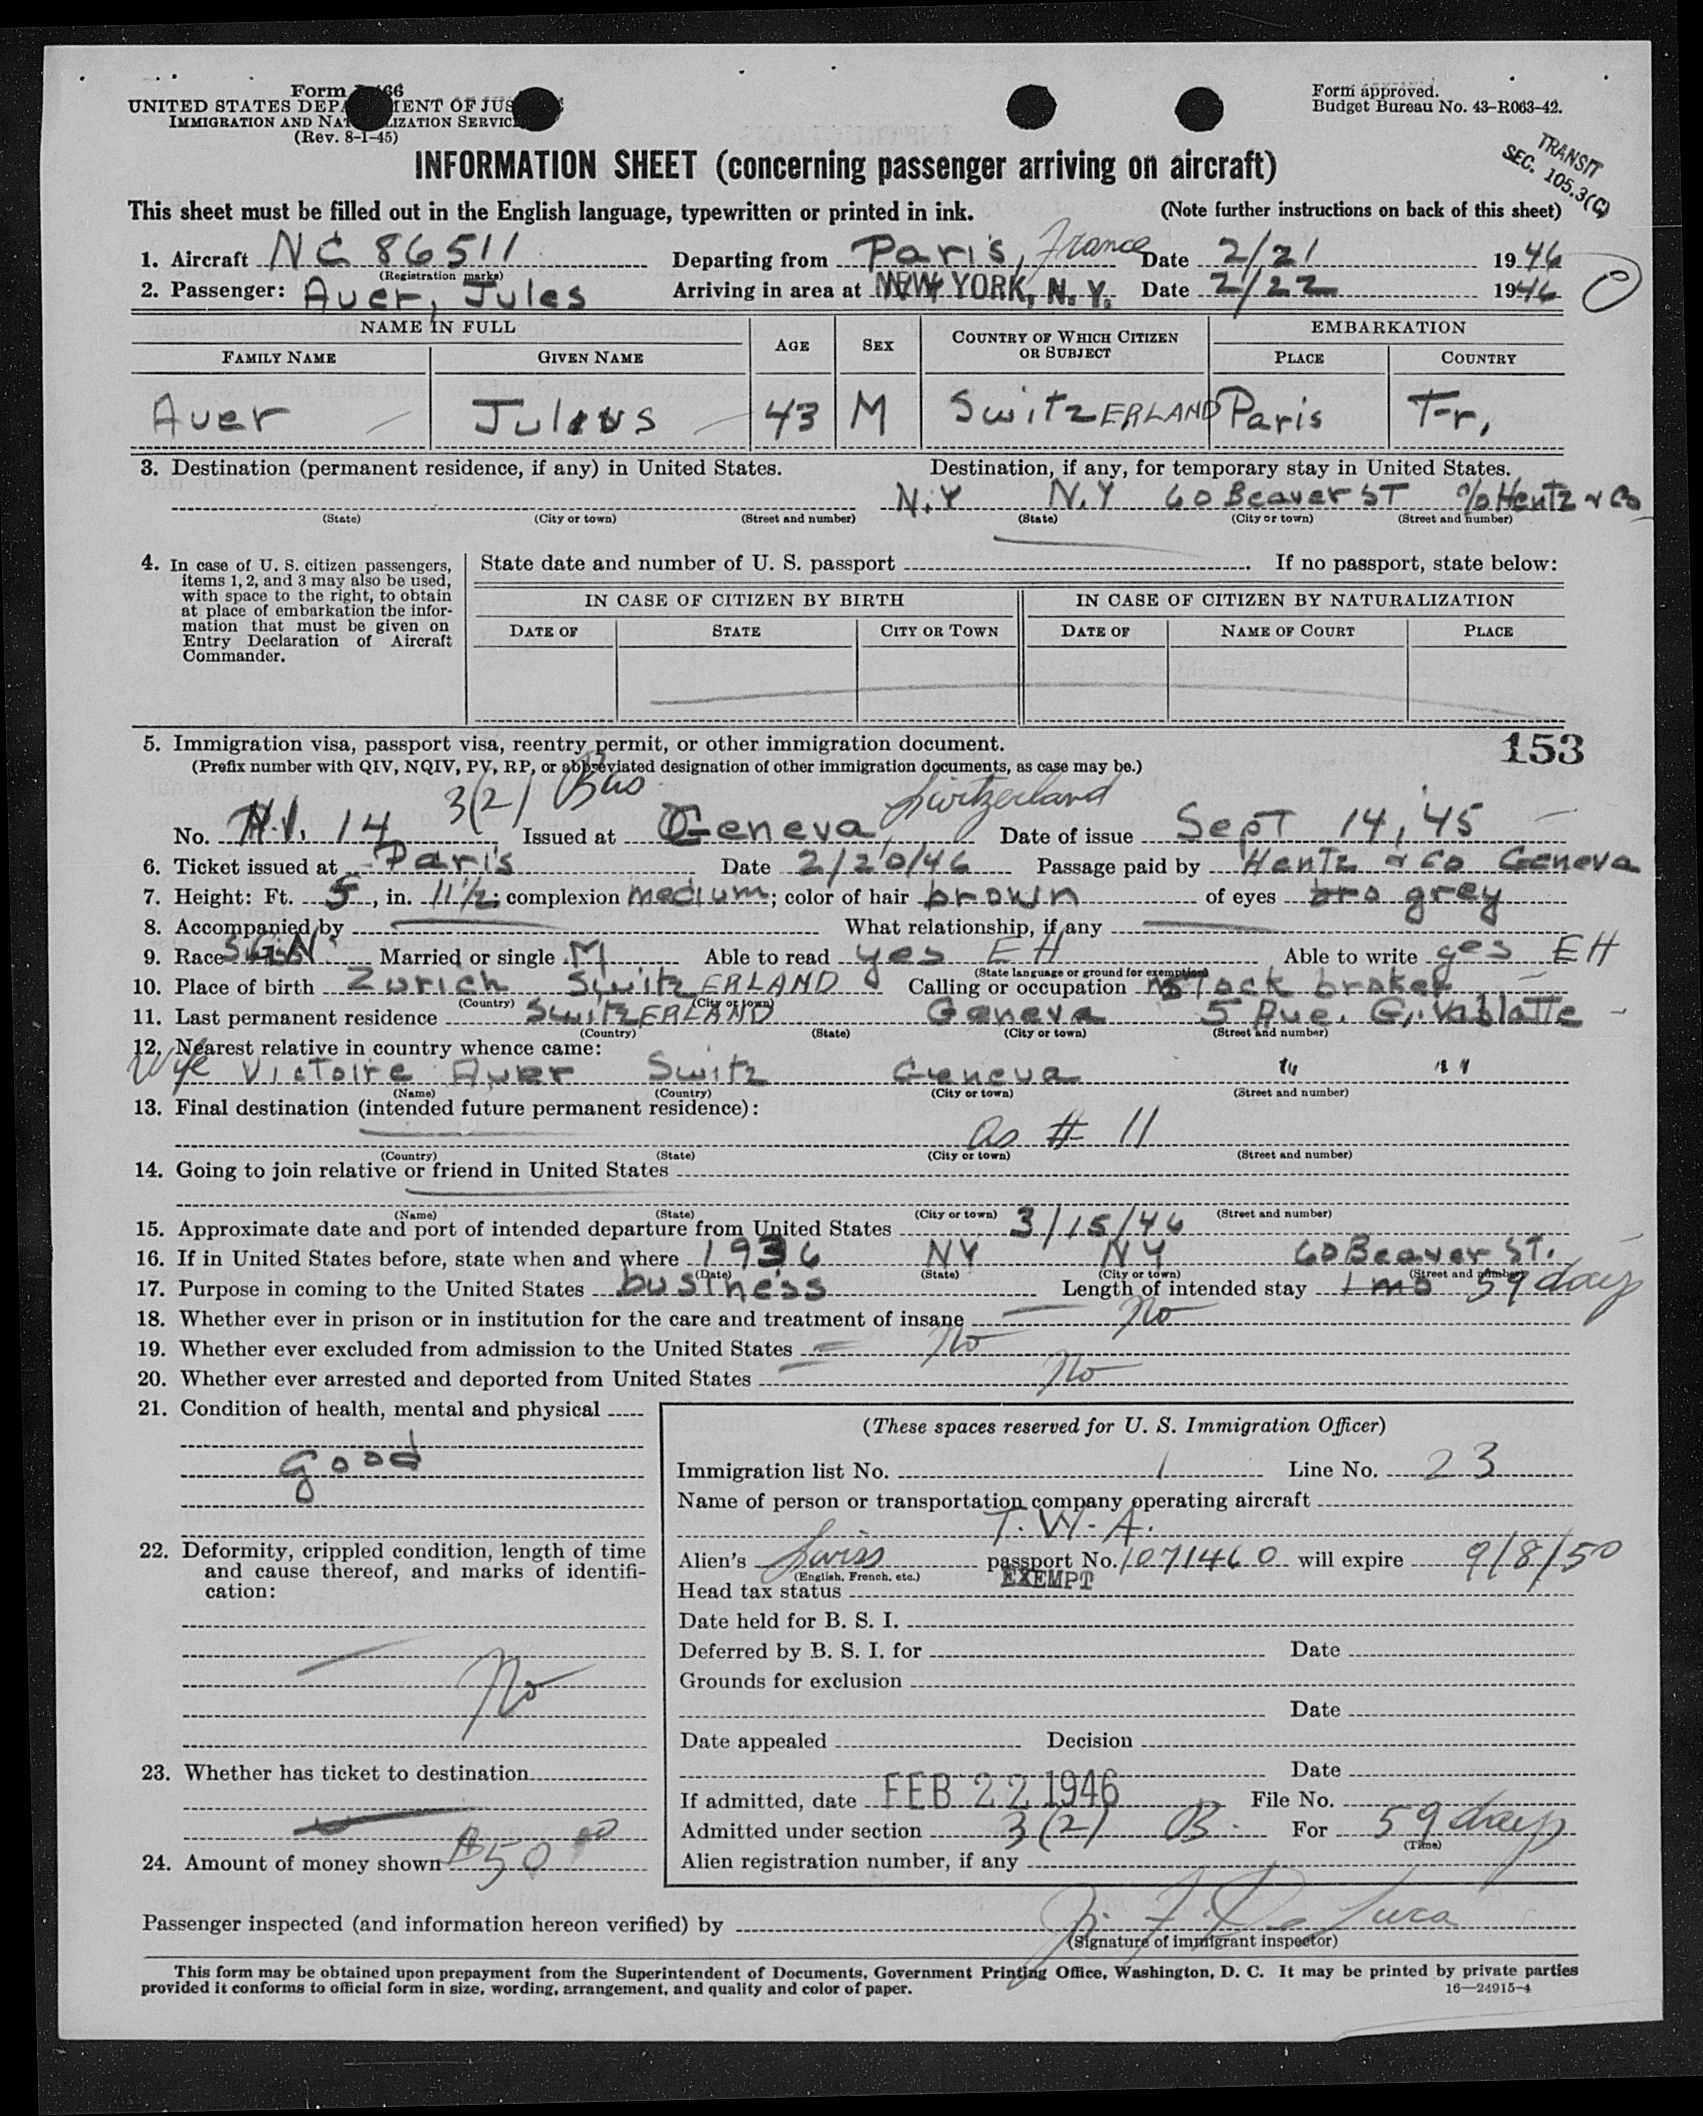 Form 466
UNITED STATES DEPARTMENT OF JUSTICE
IMMIGRATION AND NATURALIZATION SERVICE
(Rev. 8-1-45)
Form approved.
Budget Bureau No. 43-R063-42.
TRANSIT
SEC. 105.3(C)
INFORMATION SHEET (concerning passenger arriving on aircraft)
This sheet must be filled out in the English language, typewritten or printed in ink. (Note further instructions on back of this sheet)
1. Aircraft NC 86511 Departing from Paris, France Date 2/21 1946
(Registration marks)
2. Passenger: Auer, Jules Arriving in area at NEW YORK, N. Y. Date 2/22 1946
NAME IN FULL AGE SEX COUNTRY OF WHICH CITIZEN OR SUBJECT EMBARKATION
FAMILY NAME GIVEN NAME PLACE COUNTRY
Auer Julius 43 M SwitzERLAND Paris Fr,
3. Destination (permanent residence, if any) in United States. Destination, if any, for temporary stay in United States.
N.Y N.Y 60 Beaver ST % Hentz & Co
(State) (City or town) (Street and number) (State) (City or town) (Street and number)
4. In case of U. S. citizen passengers, items 1, 2, and 3 may also be used, with space to the right, to obtain at place of embarkation the information that must be given on Entry Declaration of Aircraft Commander.
State date and number of U. S. passport . If no passport, state below:
IN CASE OF CITIZEN BY BIRTH IN CASE OF CITIZEN BY NATURALIZATION
DATE OF STATE CITY OR TOWN DATE OF NAME OF COURT PLACE
5. Immigration visa, passport visa, reentry permit, or other immigration document. 153
(Prefix number with QIV, NQIV, PV, RP, or abbreviated designation of other immigration documents, as case may be.)
3(2) Bus Switzerland
No. 14 Issued at Geneva, Date of issue Sept 14, '45
6. Ticket issued at Paris Date 2/20/46 Passage paid by Hentz & Co Geneva
7. Height: Ft. 5, in. 11 1/2; complexion medium; color of hair brown of eyes bro grey
8. Accompanied by What relationship, if any
9. Race Married or single M Able to read yes EH Able to write yes EH
(State language or ground for exemption)
10. Place of birth Zurich SwitzERLAND Calling or occupation Stock broker
(Country) (City or town)
11. Last permanent residence SwitzERLAND Geneva 5 Rue.
(Country) (State) (City or town) (Street and number)
12. Nearest relative in country whence came:
Wife Victoire Auer Switz Geneva " "
(Name) (Country) (City or town) (Street and number)
13. Final destination (intended future permanent residence):
as # 11
(Country) (State) (City or town) (Street and number)
14. Going to join relative or friend in United States
(Name) (State) (City or town) (Street and number)
15. Approximate date and port of intended departure from United States 3/15/46
16. If in United States before, state when and where 1936 NY NY 60 Beaver ST.
(Date) (State) (City or town) (Street and number)
17. Purpose in coming to the United States business Length of intended stay 1 mo 59 days
18. Whether ever in prison or in institution for the care and treatment of insane No
19. Whether ever excluded from admission to the United States No
20. Whether ever arrested and deported from United States No
21. Condition of health, mental and physical
good
22. Deformity, crippled condition, length of time and cause thereof, and marks of identification:
No
23. Whether has ticket to destination
24. Amount of money shown $50 00
(These spaces reserved for U. S. Immigration Officer)
Immigration list No. 1 Line No. 23
Name of person or transportation company operating aircraft
T. W. A.
Alien's Swiss passport No. 1071460 will expire 9/8/50
(English, French, etc.)
Head tax status EXEMPT
Date held for B. S. I.
Deferred by B. S. I. for Date
Grounds for exclusion
Date
Date appealed Decision
Date
If admitted, date FEB 22 1946 File No.
Admitted under section 3(2) B. For 59 days
(Time)
Alien registration number, if any
Passenger inspected (and information hereon verified) by J. F. De Luca
(Signature of immigrant inspector)
This form may be obtained upon prepayment from the Superintendent of Documents, Government Printing Office, Washington, D. C. It may be printed by private parties
provided it conforms to official form in size, wording, arrangement, and quality and color of paper. 16—24915-4